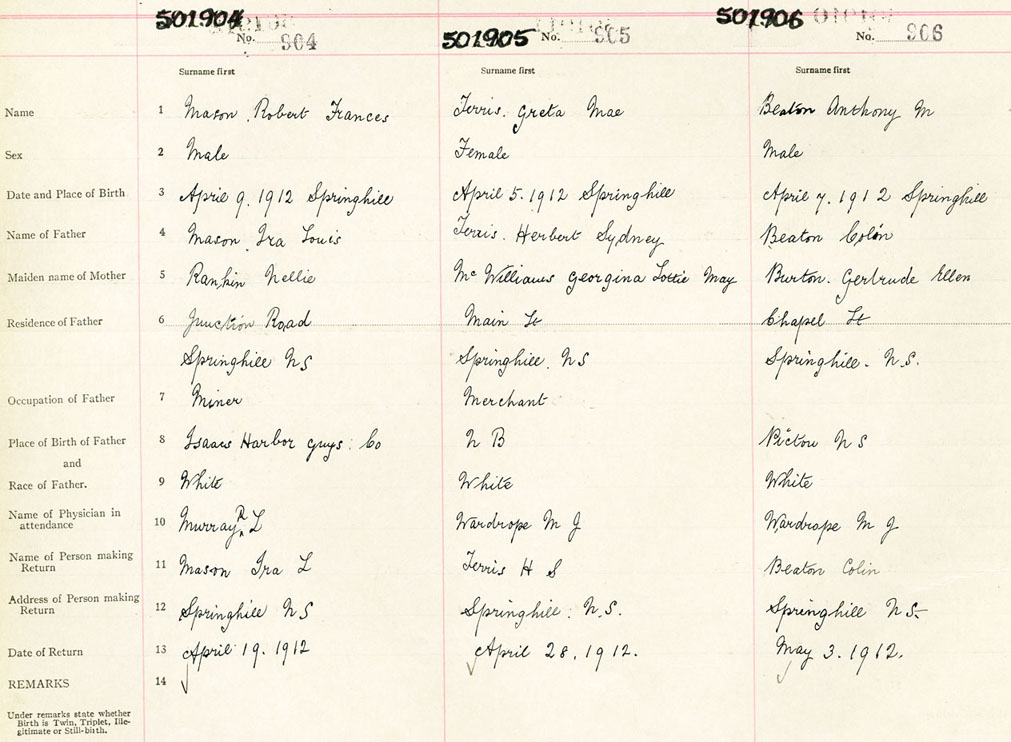 501904 No. 904 501905 No. 905 501906 No. 906
Surname first Surname first Surname first
Name 1 Mason. Robert Frances Ferris. Greta Mae Beaton Anthony M
Sex 2 Male Female Male
Date and Place of Birth 3 April 9. 1912 Springhill April 5. 1912 Springhill April 7. 1912 Springhill
Name of Father 4 Mason. Ira Louis Ferris. Herbert Sydney Beaton Colin
Maiden name of Mother 5 Rankin Nellie Mc Williams Georgina Lottie May Burton. Gertrude Ellen
Residence of Father 6 Junction Road Main St Chapel St
Springhill NS Springhill. NS Springhill. N.S.
Occupation of Father 7 Miner Merchant
Place of Birth of Father 8 Isaacs Harbor Guys. Co N B Pictou N S
and
Race of Father. 9 White White White
Name of Physician in
attendance 10 Murray R L Wardrope M J Wardrope M J
Name of Person making
Return 11 Mason Ira L Ferris H S Beaton Colin
Address of Person making
Return 12 Springhill NS Springhill. N.S. Springhill N.S.
Date of Return 13 April 19. 1912 April 28. 1912. May 3. 1912.
REMARKS 14
Under remarks state whether
Birth is Twin, Triplet, Ille-
gitimate or Still-birth.